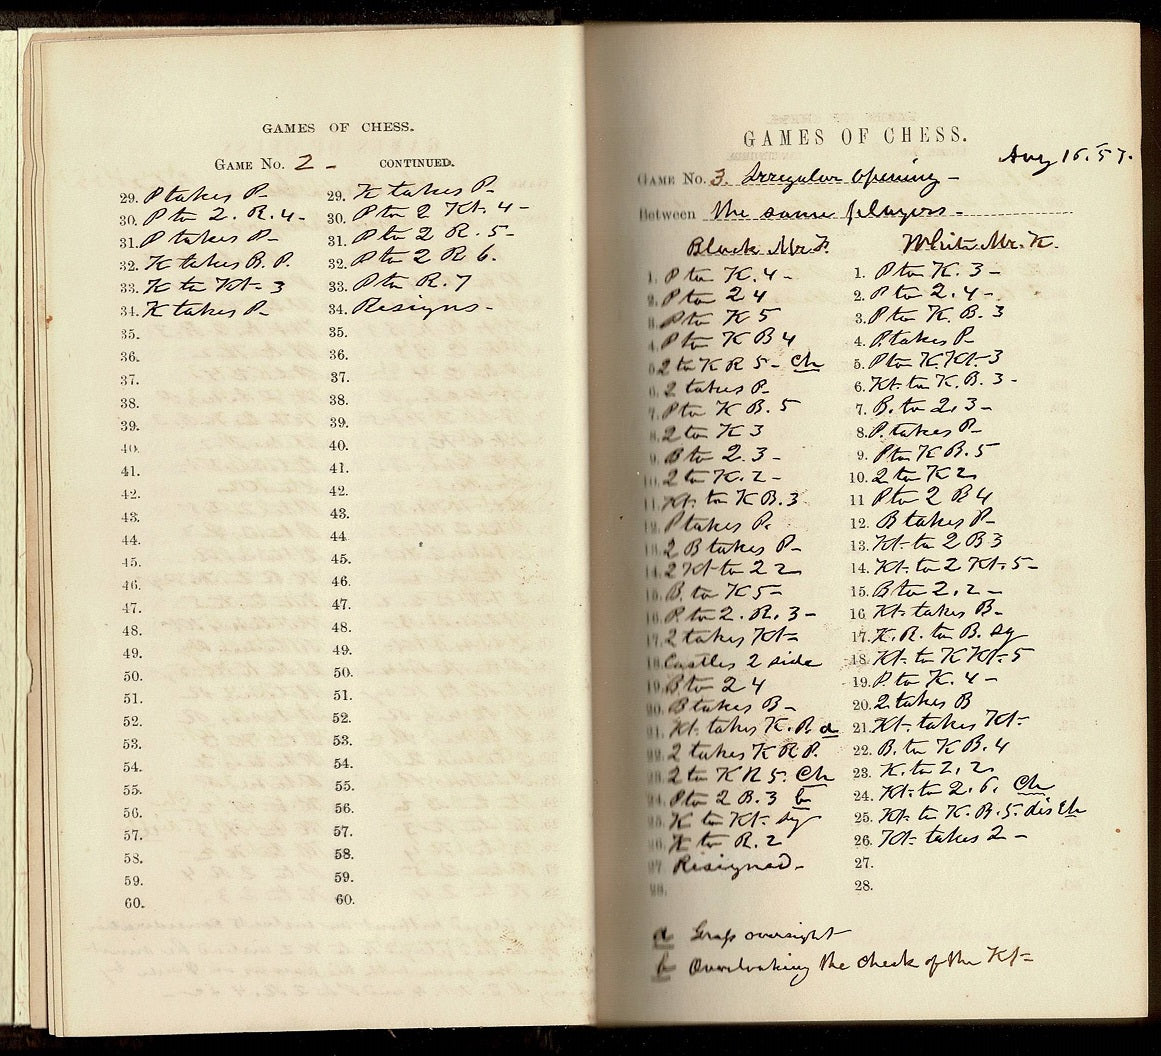 GAMES OF CHESS.
GAME No. 2 - CONTINUED.
29. P takes P- 29. K takes P-
30. P to 2. R. 4- 30. P to 2 Kt. 4-
31. P takes P- 31. P to 2 R. 5-
32. K takes B. P. 32. P to 2 R 6.
33. K to Kt- 3 33. P to R. 7
34. K takes P- 34. Resigns-
35. 35.
36. 36.
37. 37.
38. 38.
39. 39.
40. 40.
41. 41.
42. 42.
43. 43.
44. 44
45. 45.
46. 46.
47. 47.
48. 48.
49. 49.
50. 50.
51. 51.
52. 52.
53. 53.
54. 54.
55. 55.
56. 56.
57. 57.
58. 58.
59. 59.
60. 60.
GAMES OF CHESS.
Aug 16. 57.
GAME No. 3. Irregular Opening-
Between the same players-
Black Mr. F. White Mr. K.
1. P to K. 4- 1. P to K. 3-
2. P to 2 4 2. P to 2. 4-
3. P to K 5 3. P to K. B. 3
4. P to K B 4 4. P takes P-
5. 2 to K R 5- Ch 5. P to K. Kt- 3
6. 2 takes P- 6. Kt- to K. B. 3-
7. P to K B. 5 7. B. to 2. 3-
8. 2 to K 3 8. P. takes P-
9. B to 2. 3- 9. P to K B. 5
10. 2 to K. 2- 10. 2 to K 2
11. Kt- to K B. 3 11 P to 2 B 4
12. P takes P. 12. B takes P-
13. 2 B takes P- 13. Kt- to 2 B 3
14. 2 Kt to 2 2 14. Kt- to 2 Kt- 5-
15. B. to K 5- 15. B to 2. 2-
16. P. to 2. R. 3- 16. Kt- takes B-
17. 2 takes Kt- 17. K. R. to B. sq
18. Castles 2 side 18. Kt- to K Kt- 5
19. B to 2 4 19. P to K. 4-
20. B takes B- 20. 2 takes B
21. Kt- takes K. P. a 21. Kt- takes Kt-
22. 2 takes K R P. 22. B. to K B. 4
23. 2 to K R 5. Ch 23. K. to 2. 2
24. P to 2 B. 3 b 24. Kt- to 2. 6. Ch
25. K to Kt- sq 25. Kt- to K. B. 5. dis Ch
26. K to R. 2 26. Kt- takes 2-
27. Resigned- 27.
28. 28.
a Gross oversight
b Overlooking the check of the Kt-